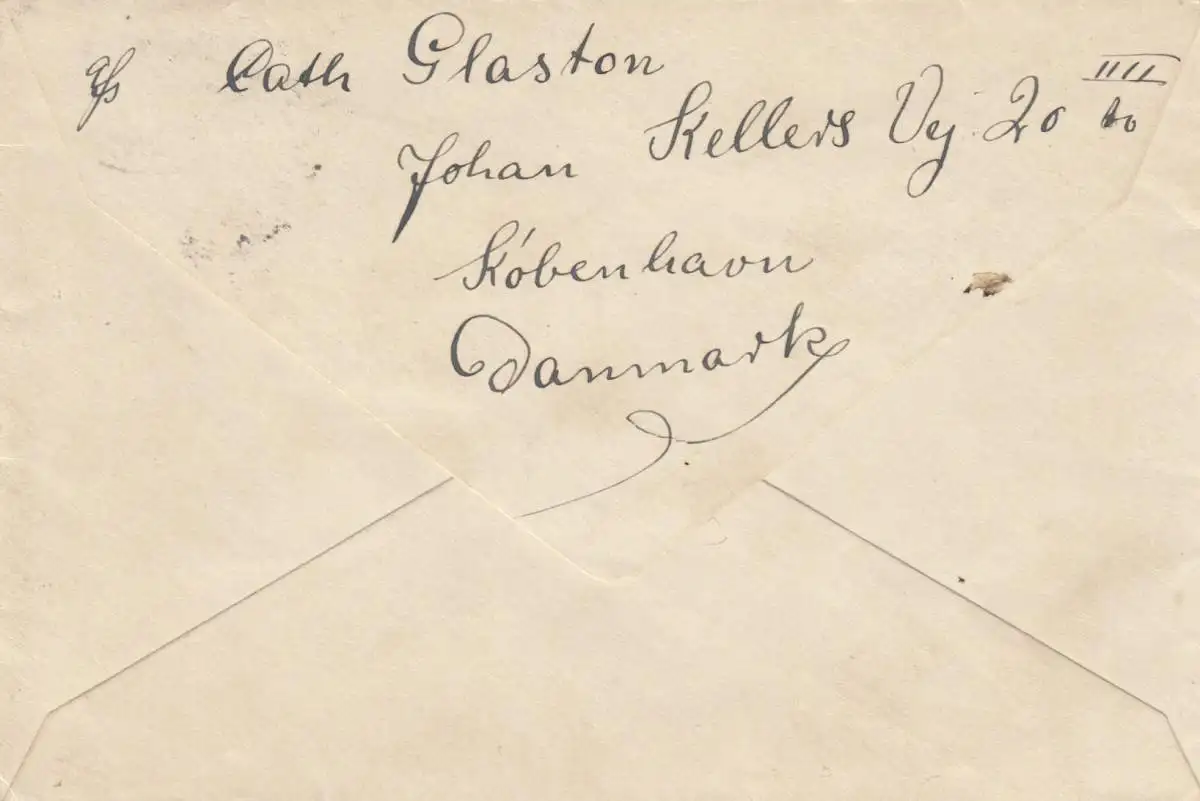 Afs Cath Glaston
Johan Kellers Vej 20 IIII to
København
Danmark